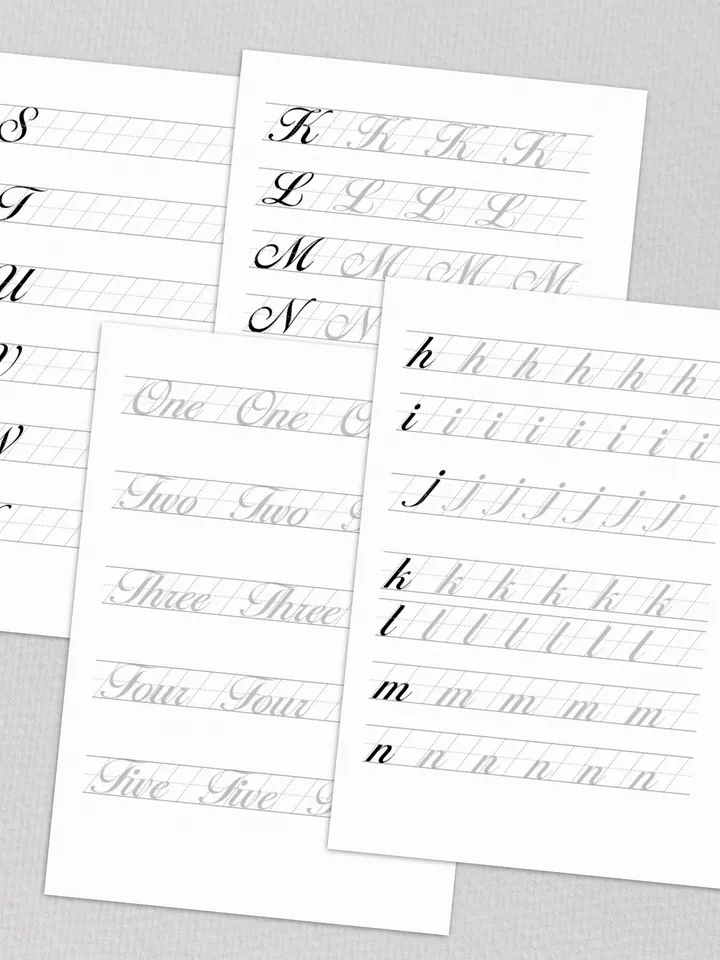 S
T
U
V
W
K K K K
L L L L
M M M M
N N
One One
Two Two
Three Three
Four Four
Five Five
h h h h h h
i i i i i i i i
j j j j j j j
k k k k k k
l l l l l l
m m m m m
n n n n n n